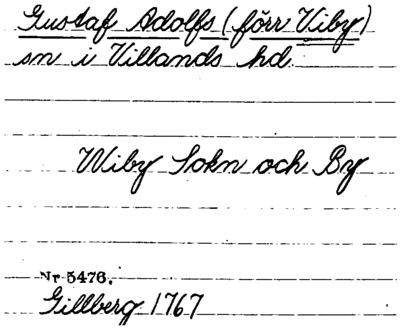 Gustaf Adolfs (förr Viby)
sn i Villands hd
Wiby Sokn och By
Nr 5476.
Gillberg 1767